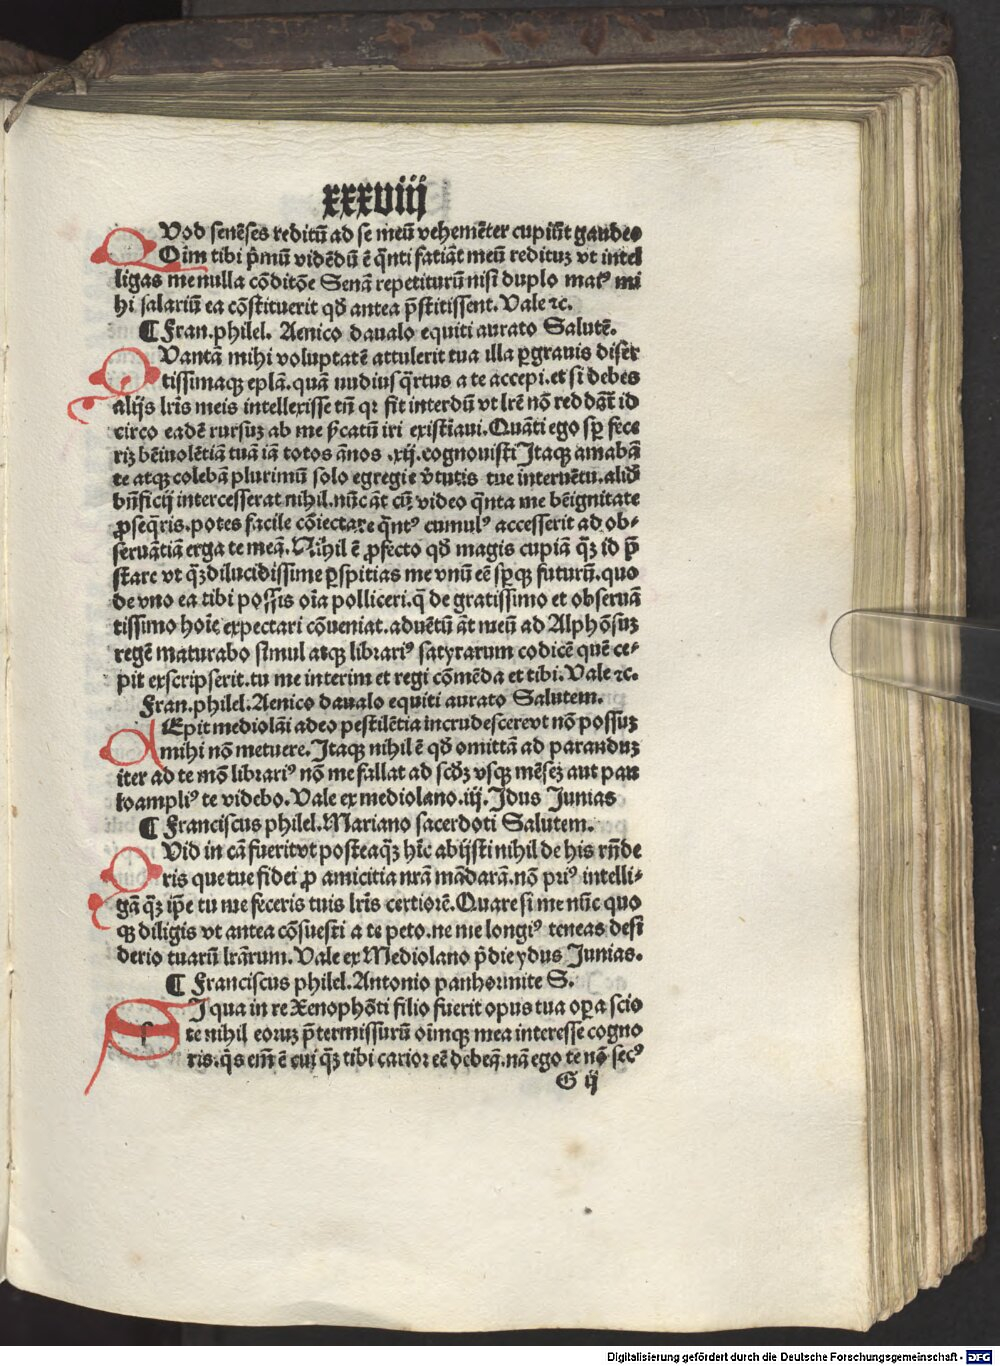 xxxviij
QVod senẽses reditũ ad se meũ vehemẽter cupiũt gaudeo
Oim tibi p̃mũ vidẽdũ ē q̃nti fatiãt meũ redituꝫ vt intel
ligas me nulla cõditõe Senã repetiturũ nisi duplo maiꝰ mi
hi salariũ ea cõstituerit qđ antea p̃stitissent. Vale ⁊c.
¶ Fran. philel. Aenico daualo equiti aurato Salutẽ.
QVantã mihi voluptatẽ attulerit tua illa ꝑgrauis diser
tissimaqꝫ ep̃la. quã nudius q̃rtus a te accepi. et si debes
alijs lr̃is meis intellexisse tñ qꝛ fit interdũ vt lr̃e nõ reddãt̃ id
circo eadẽ rursuꝫ ab me p̃catũ iri existiaui. Quãti ego sꝑ fece
rĩꝫ bẽiuolẽtiã tuã iã totos ãnos .xij. cognouisti Itaqꝫ amabã
te atqꝫ colebã plurimũ solo egregie v̓tutis tue interuẽtu. aliđ
bñficij intercesserat nihil. nũc ãt cũ video q̃nta me bẽignitate
ꝓseq̃ris. potes facile cõiectare q̃ntꝰ cumulꝰ accesserit ad ob⸗
seruãtiã erga te meã. Nihil ē ꝓfecto qđ magis cupiã q̃ꝫ id p̃
stare vt q̃ꝫ dilucidissime ꝑspitias me vnũ eẽ sꝑqꝫ futurũ. quo
de vno ea tibi possis oĩa polliceri. q̃ de gratissimo et obseruã
tissimo hoĩe expectari cõueniat. aduẽtũ ãt meũ ad Alphõsuꝫ
regẽ maturabo simul atqꝫ librariꝰ satyrarum codicẽ quẽ ce⸗
pit exscripserit. tu me interim et regi cõmẽda et tibi. Vale ⁊c.
Fran. philel. Aenico daualo equiti aurato Salutem.
CEpit mediolãi adeo pestilẽtia incrudescere vt nõ possuꝫ
mihi nõ metuere. Itaqꝫ nihil ē qđ omittã ad paranduꝫ
iter ad te mõ librariꝰ nõ me fallat ad scđꝫ vsqꝫ mẽseꝫ aut pau
lo ampliꝰ te videbo. Vale ex mediolano. iij. Idus Junias
¶ Franciscus philel. Mariano sacerdoti Salutem.
QVid in cã fuerit vt posteaq̃ꝫ hĩc abijsti nihil de his rñde
ris que tue fidei ꝓ amicitia nr̃a mãdarã. nõ priꝰ intelli⸗
gã q̃ꝫ ip̃e tu me feceris tuis lr̃is certiorẽ. Quare si me nũc quo
qꝫ diligis vt antea cõsuesti a te peto. ne me longiꝰ teneas desi
derio tuarũ lr̃arum. Vale ex Mediolano p̃die ydus Junias.
¶ Franciscus philel. Antonio panhormite S.
SIqua in re Xenophõti filio fuerit opus tua oꝑa scio
te nihil eoruꝫ p̃termissurũ oĩmqꝫ mea interesse cogno
ris. q̃s em̃ ē cui q̃ꝫ tibi carior eẽ debeã. nã ego te nõ secꝰ
G ij
Digitalisierung gefördert durch die Deutsche Forschungsgemeinschaft - DFG